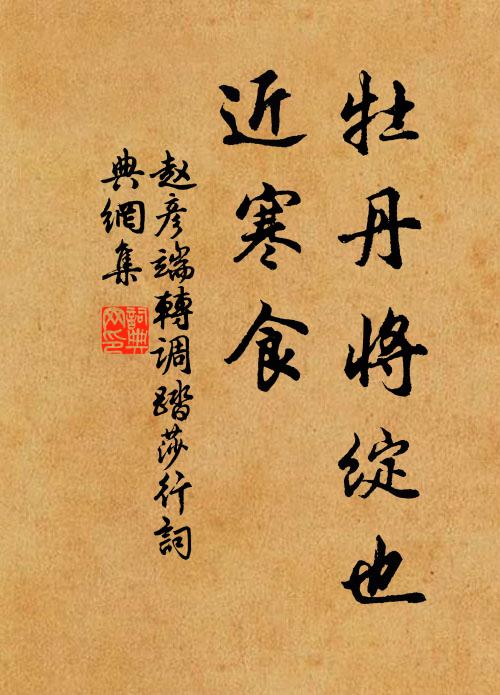 牡丹将綻也
近寒食
赵彦端轉调踏莎行詞
典網集
詞典
网印